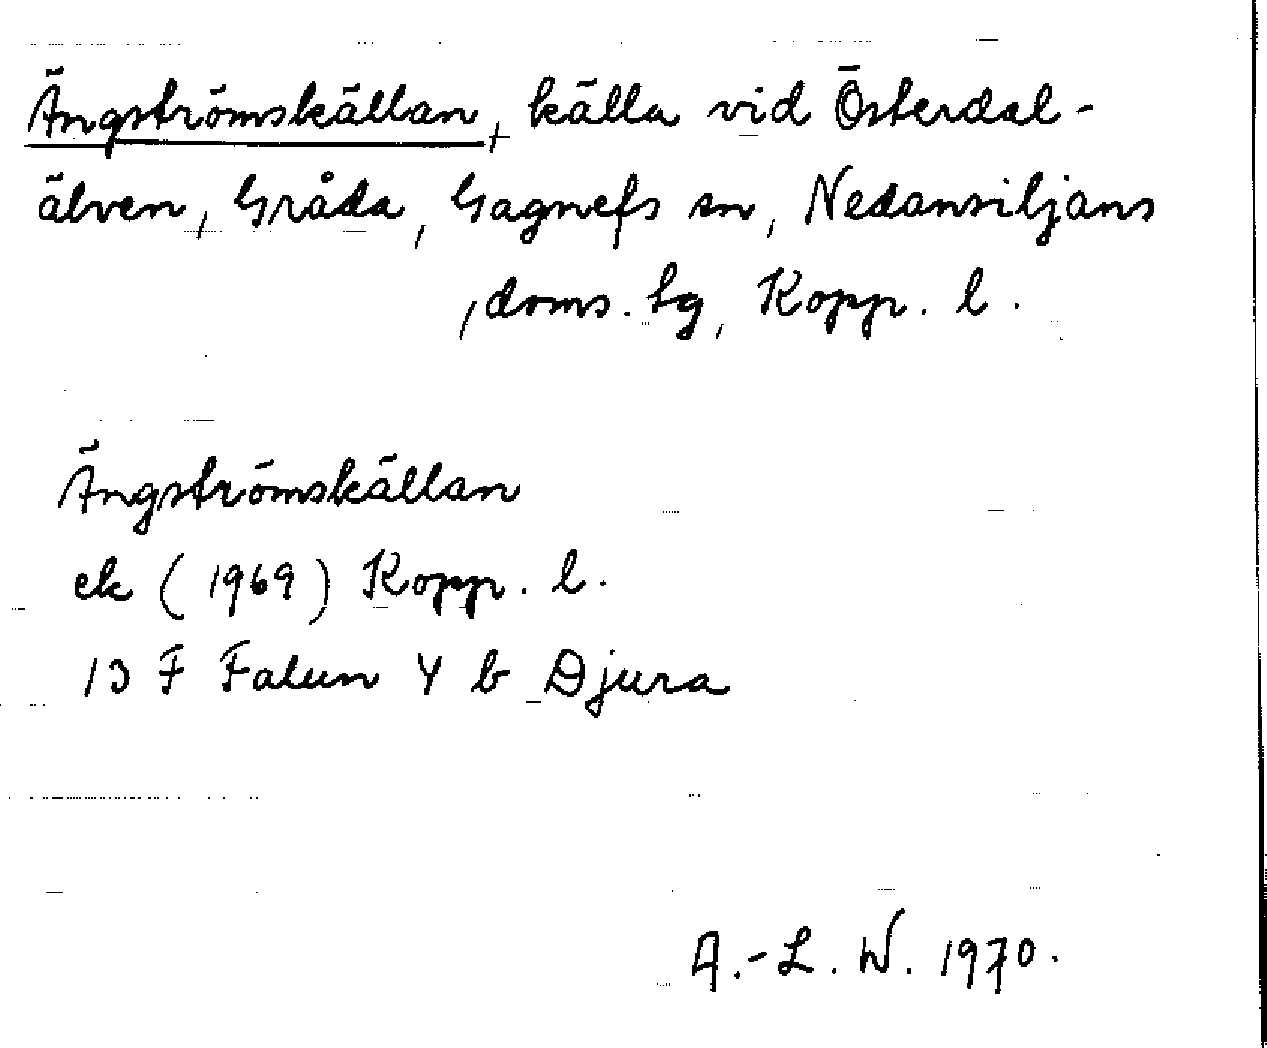 Ängströmskällan, källa vid Österdal-
älven, Gråda, Gagnefs sn, Nedansiljans
doms. tg, Kopp. l.
Ängströmskällan
ek (1969) Kopp. l.
13 F Falun Y b Djura
A.-L. W. 1970.